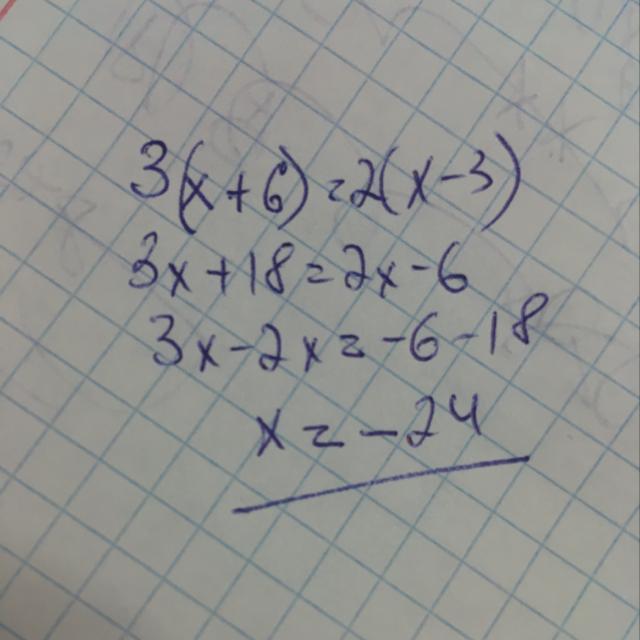 3(x+6)=2(x-3)
3x+18=2x-6
3x-2x=-6-18
x=-24